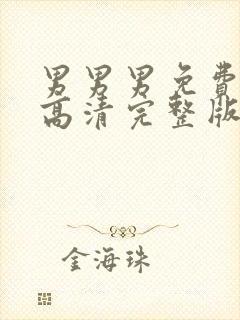 男男男免费
高清完整版
金海珠